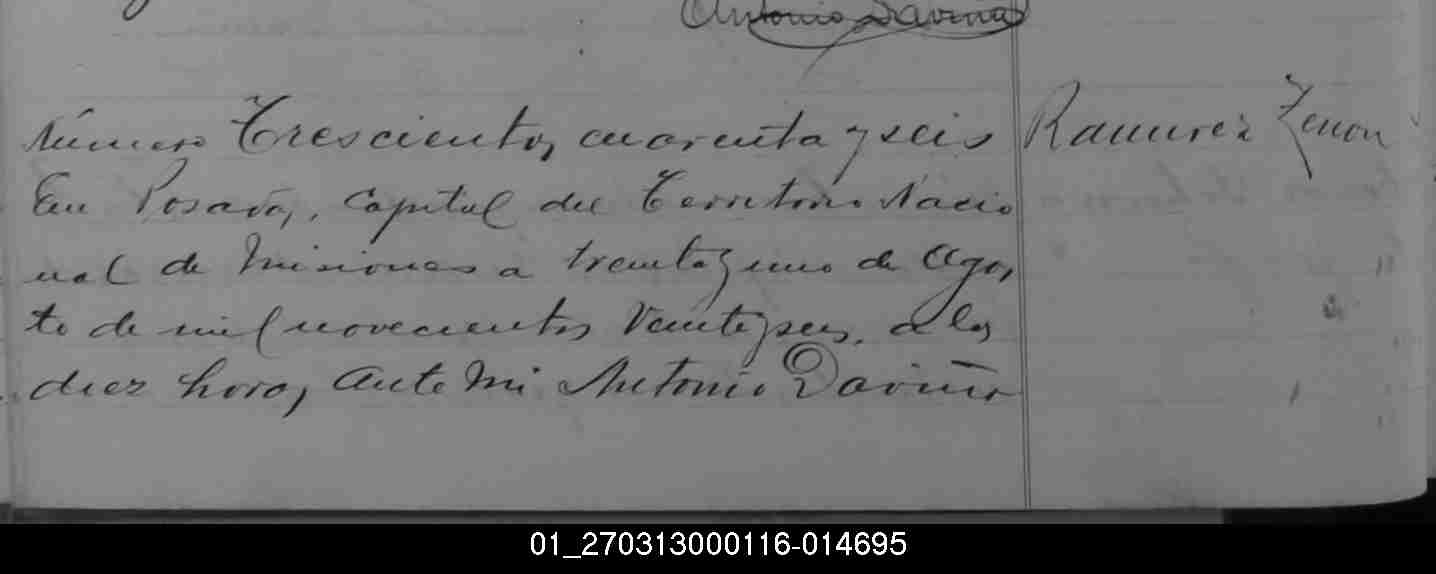 Antonio Daviña
Número Trescientos cuarenta y seis
Ramirez Zenon
En Posadas, Capital del Territorio Nacio
nal de Misiones a treinta y uno de Agos
to de mil novecientos veinte y seis, a las
diez horas, Ante Mi Antonio Daviña
01_270313000116-014695